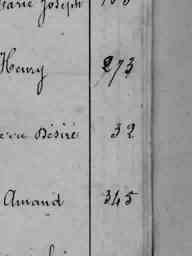 Marie Joseph
Henry 273
erre Désiré 32
Amand 345